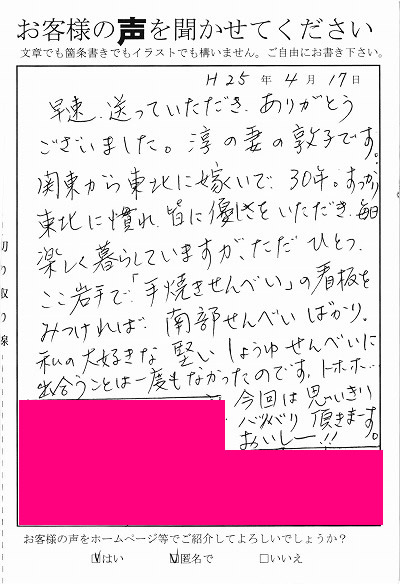 お客様の声を聞かせてください
文章でも箇条書きでもイラストでも構いません。ご自由にお書き下さい。
H25年4月17日
早速、送っていただき、ありがとう
ございました。淳の妻の敦子です。
関東から東北に嫁いで、30年。すっかり
東北に慣れ、皆に優しさをいただき、毎日
楽しく暮らしていますが、ただひとつ、
ここ岩手で、「手焼きせんべい」の看板を
みつければ、南部せんべいばかり。
私の大好きな堅いしょうゆせんべいに
出合うことは一度もなかったのです。トホホ…
今回は思いきり
バリバリ頂きまーす。
おいしー!!
切り取り線
お客様の声をホームページ等でご紹介してよろしいでしょうか?
☑はい ☑匿名で □いいえ